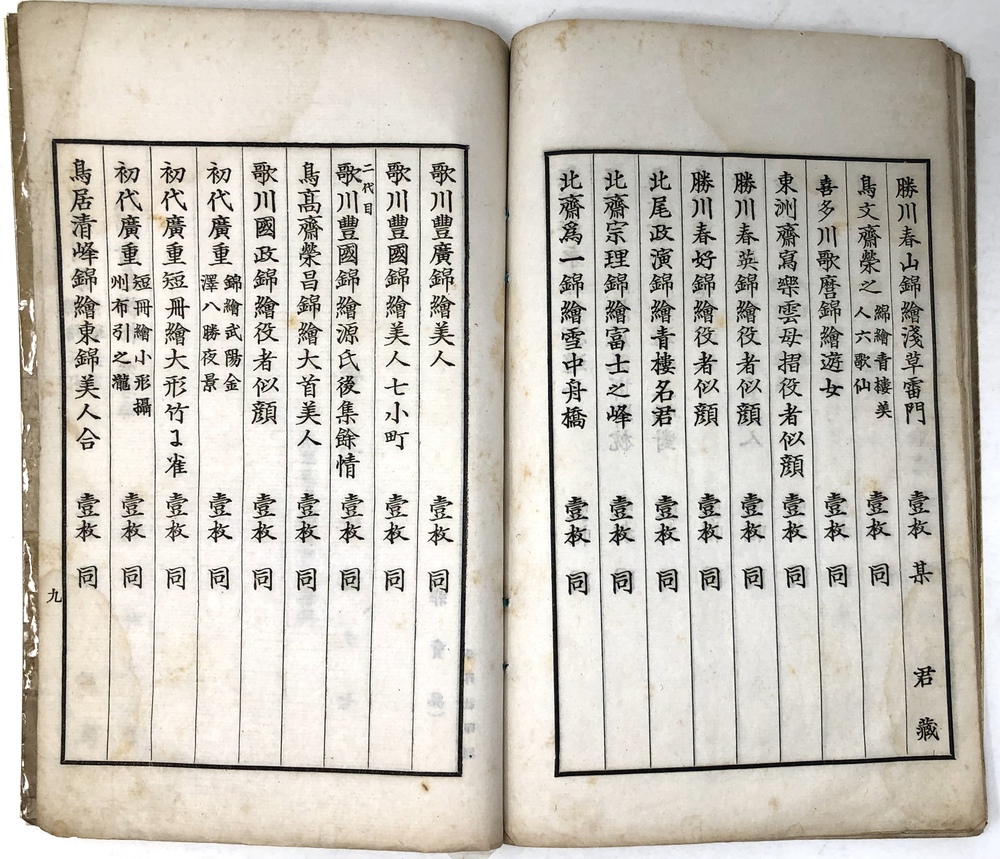 勝川春山錦繪淺草雷門 壹枚 某 君 藏
鳥文齋榮之 錦繪青樓美人六歌仙 壹枚 同
喜多川歌麿錦繪遊女 壹枚 同
東洲齋寫樂雲母摺役者似顔 壹枚 同
勝川春英錦繪役者似顔 壹枚 同
勝川春好錦繪役者似顔 壹枚 同
北尾政演錦繪青樓名君 壹枚 同
北齋宗理錦繪富士之峰 壹枚 同
北齋爲一錦繪雪中舟橋 壹枚 同
歌川豐廣錦繪美人 壹枚 同
歌川豐國錦繪美人七小町 壹枚 同
二代目
歌川豐國錦繪源氏後集餘情 壹枚 同
鳥高齋榮昌錦繪大首美人 壹枚 同
歌川國政錦繪役者似顔 壹枚 同
初代廣重 錦繪武陽金澤八勝夜景 壹枚 同
初代廣重短冊繪大形竹ニ雀 壹枚 同
初代廣重 短冊繪小形攝州布引之瀧 壹枚 同
鳥居清峰錦繪東錦美人合 壹枚 同
九